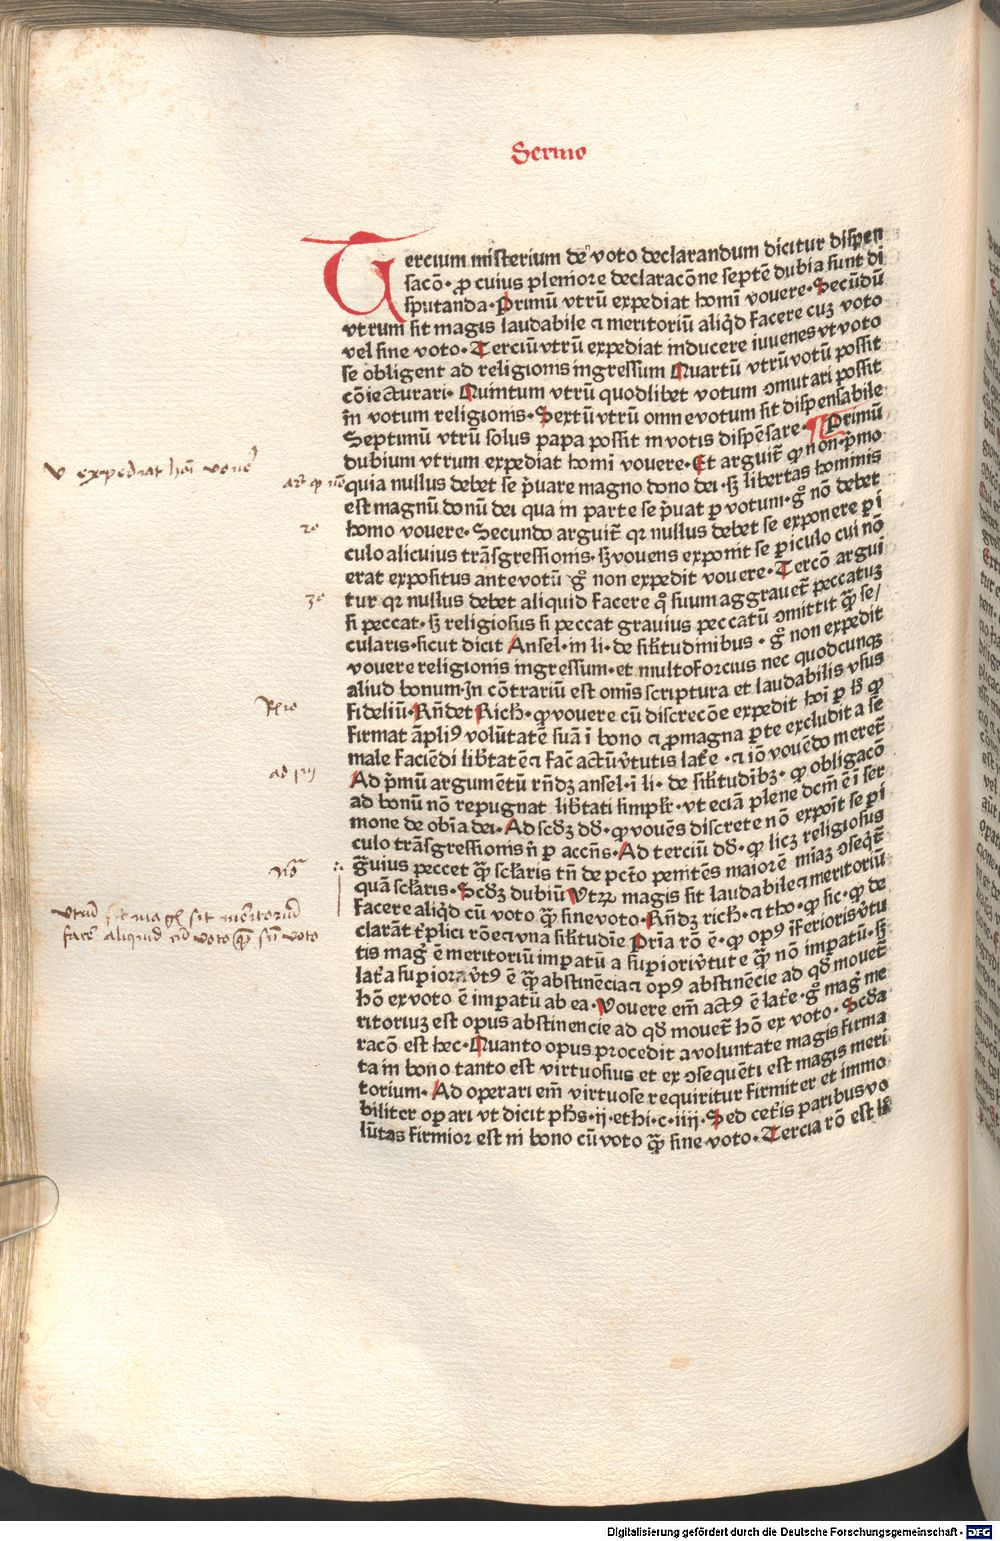 Sermo
Tercium misterium de voto declarandum dicitur dispen
sacõ· ꝓ cuius pleniore declaracõne septẽ dubia sunt di
sputanda· Primũ vtrũ expediat homĩ vouere· Secũdũ
vtrum sit magis laudabile ⁊ meritoriũ aliqͥd facere cuꝫ voto
vel sine voto· Terciũ vtrũ expediat inducere iuuenes vt voto
se obligent ad religionis ingressum Quartũ vtrũ votũ possit
cõiecturari· Quintum vtrũ quodlibet votum ꝯmutari possit
ĩn votum religionis· Sextũ vtrũ omne votum sit dispensabile
Septimũ vtrũ solus papa possit in votis dispẽsare· ¶ Primũ
dubium vtrum expediat homĩ vouere· Et arguit̃ ꝙ non· pͥmo
quia nullus debet se pͥuare magno dono dei· sꝫ libertas hominis
est magnũ donũ dei qua in parte se pͥuat ꝑ votum· gͦ nõ debet
homo vouere· Secundo arguit̃ qꝛ nullus debet se exponere ꝑi
culo alicuius trãsgressionis· sꝫ vouens exponit se ꝑiculo cui nõ
erat expositus ante votũ gͦ non expedit vouere· Tercõ argui
tur qꝛ nullus debet aliquid facere qͦ suum aggrauet̃ peccatuꝫ
si peccat· sꝫ religiosus si peccat grauius peccatũ ꝯmittit qͣ̃ se/
cularis· sicut dicit Ansel· in li· de sil̃itudinibus· gͦ non expedit
vouere religionis ingressum· et multo forcius nec quodcunqꝫ
aliud bonum· In cõtrariũ est omĩs scriptura et laudabilis vsus
fideliũ· Rñdet Rich· ꝙ vouere cũ discrecõe expedit hoĩ ꝑ hͦ ꝙ
firmat ãpliꝰ volũtatẽ suã ĩ bono ⁊ ꝓ magna ꝑte excludit a se
male faciẽdi lib̃tatẽ ⁊ fac̃ actũ v̾tutis lat̾e· ⁊ iõ vouẽdo meret̃
Ad pͥmũ argumẽtũ rñdꝫ ansel· ĩ li· de sil̃itudĩbꝫ· ꝙ obligacõ
ad bonũ nõ repugnat lib̃tati simpl̃r· vt eciã plene dcm̃ ẽ ĩ ser
mone de obĩa dei· Ad scd̾ꝫ dd̾· ꝙ vouẽs discrete nõ expoĩt se ꝑi
culo trãsgressionis ñ ꝑ accñs· Ad terciũ dd̾· ꝙ licꝫ religiosus
gͣuius peccet qͣ̃ scl̾aris tñ de pct̾o penitẽs maiorẽ miãꝫ ꝯseqt̃
quã scl̾aris· Scd̾ꝫ dubiũ vtꝝ magis sit laudabile ⁊ meritoriũ
facere aliqͥd cũ voto qͣ̃ sine voto· Rñdꝫ rich· ⁊ tho· ꝙ sic· ꝙ de
clarãt t̾plici rõe ⁊ vna sil̃itudĩe Pͥma rõ ẽ· ꝙ opꝰ ĩferioris v̾tu
tis magͥ ẽ meritoriũ imꝑatũ a suꝑiori v̾tute qͣ̃ nõ imꝑatũ· sꝫ
lat̾ia suꝑior v̾tꝰ ẽ qͣ̃ abstinẽcia ⁊ opꝰ abstinẽcie ad qd̾ mouet̃
hõ ex voto ẽ imꝑatũ ab ea· Vouere em̃ actꝰ ẽ lat̾ie· gͦ magͥ me
ritoriuꝫ est opus abstinencie ad qd̾ mouet̃ hõ ex voto· Scd̾a
racõ est hec· Quanto opus procedit a voluntate magis firma
ta in bono tanto est virtuosius et ex ꝯsequẽti est magis meri
torium· Ad operari em̃ virtuose requiritur firmiter et immo
biliter oꝑari vt dicit ph̃s· ij· ethi· c· iiij· Sed cet̾is paribus vo
lũtas firmior est in bono cũ voto qͣ̃ sine voto· Tercia rõ est
v expediat hoĩ voue
2ͦ
3ͦ
Rͦ
ad pm
nõ
vtrũ sit magͥ sit meritoriũ
facẽ aliquid cũ voto qͣ̃ sine voto
Digitalisierung gefördert durch die Deutsche Forschungsgemeinschaft - DFG